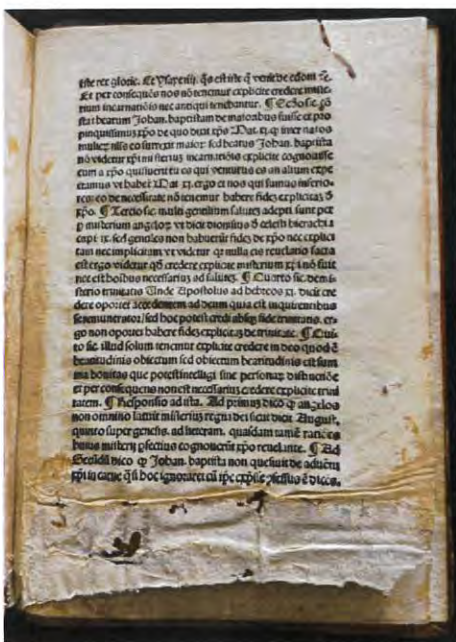 iste rex glorie. Et Ysaye lxiij. q̃s est iste q̃ venit de edom ⁊c̃.
Et per consequẽs nos nõ tenemur explicite credere miste-
rium incarnatiõis nec antiqui tenebantur. ¶ Scðo sic. cõ
stat beatum Joban. baptistam de maioribus fuisse et pro
pinquissimuꝫ xp̃o de quo dicit xp̃s Mat. xj. ꝙ inter natos
mulieꝝ nõ surrexit maior sed beatus Joban. baptista
nõ videtur xp̃i misterium incarnatiõis explicite cognouisse
cum a xp̃o quisiuerit tu es qui venturus es an alium expe-
ctamus vt habet̃ Mat. xj. ergo et nos qui sumus inferio-
res eo de necessitate nõ tenemur habere fideꝫ explicitaꝫ ð
xp̃o. ¶ Tercio sic. multi gentilium salutẽ adepti sunt per
misterium angeloꝝ vt dicit dionisius ð celesti hierarchia
capi. ix. sed gentiles non habuerũt fideꝫ de xp̃o nec explici
tam nec implicitam vt videtur qꝛ nulla eis reuelatio facta
est ergo videtur ꝙ credere explicite misterium xp̃i nõ fuit
nec est hoĩbus necessariuꝫ ad saluteꝫ. ¶ Quarto sic. de mi
sterio trinitatis Unde Apostolus ad hebreos xj. dicit cre
dere oportet accedentem ad deum quia est inquirentibus
se remunerator, sed hoc potest credi absqꝫ fide trinitatis. er-
go non oportet habere fideꝫ explicitaꝫ de trinitate. ¶ Quin
to sic. illud solum tenemur explicite credere in deo quod ẽ
beatitudinis obiectum sed obiectum beatitudinis est sum
ma bonitas que potest intelligi sine personaꝝ distinctiõe
et per consequens non est necessariuꝫ credere explicite trini
tatem. ¶ Responsio ad ista. Ad primuꝫ dico ꝙ angelos
non omnino latuit misteriuꝫ regni dei sicut dicit August.
quinto super genesis. ad literam. quasdam tamẽ ratiões
huius misterij perfectius cognouerũt xp̃o reuelante. ¶ Ad
Secũdũ dico ꝙ Joban. baptista non quesiuit de aduẽtu
xp̃i in carnẽ q̃si hoc ignoraret cũ ip̃e exp̃sse ꝯfessus ẽ dicẽs.